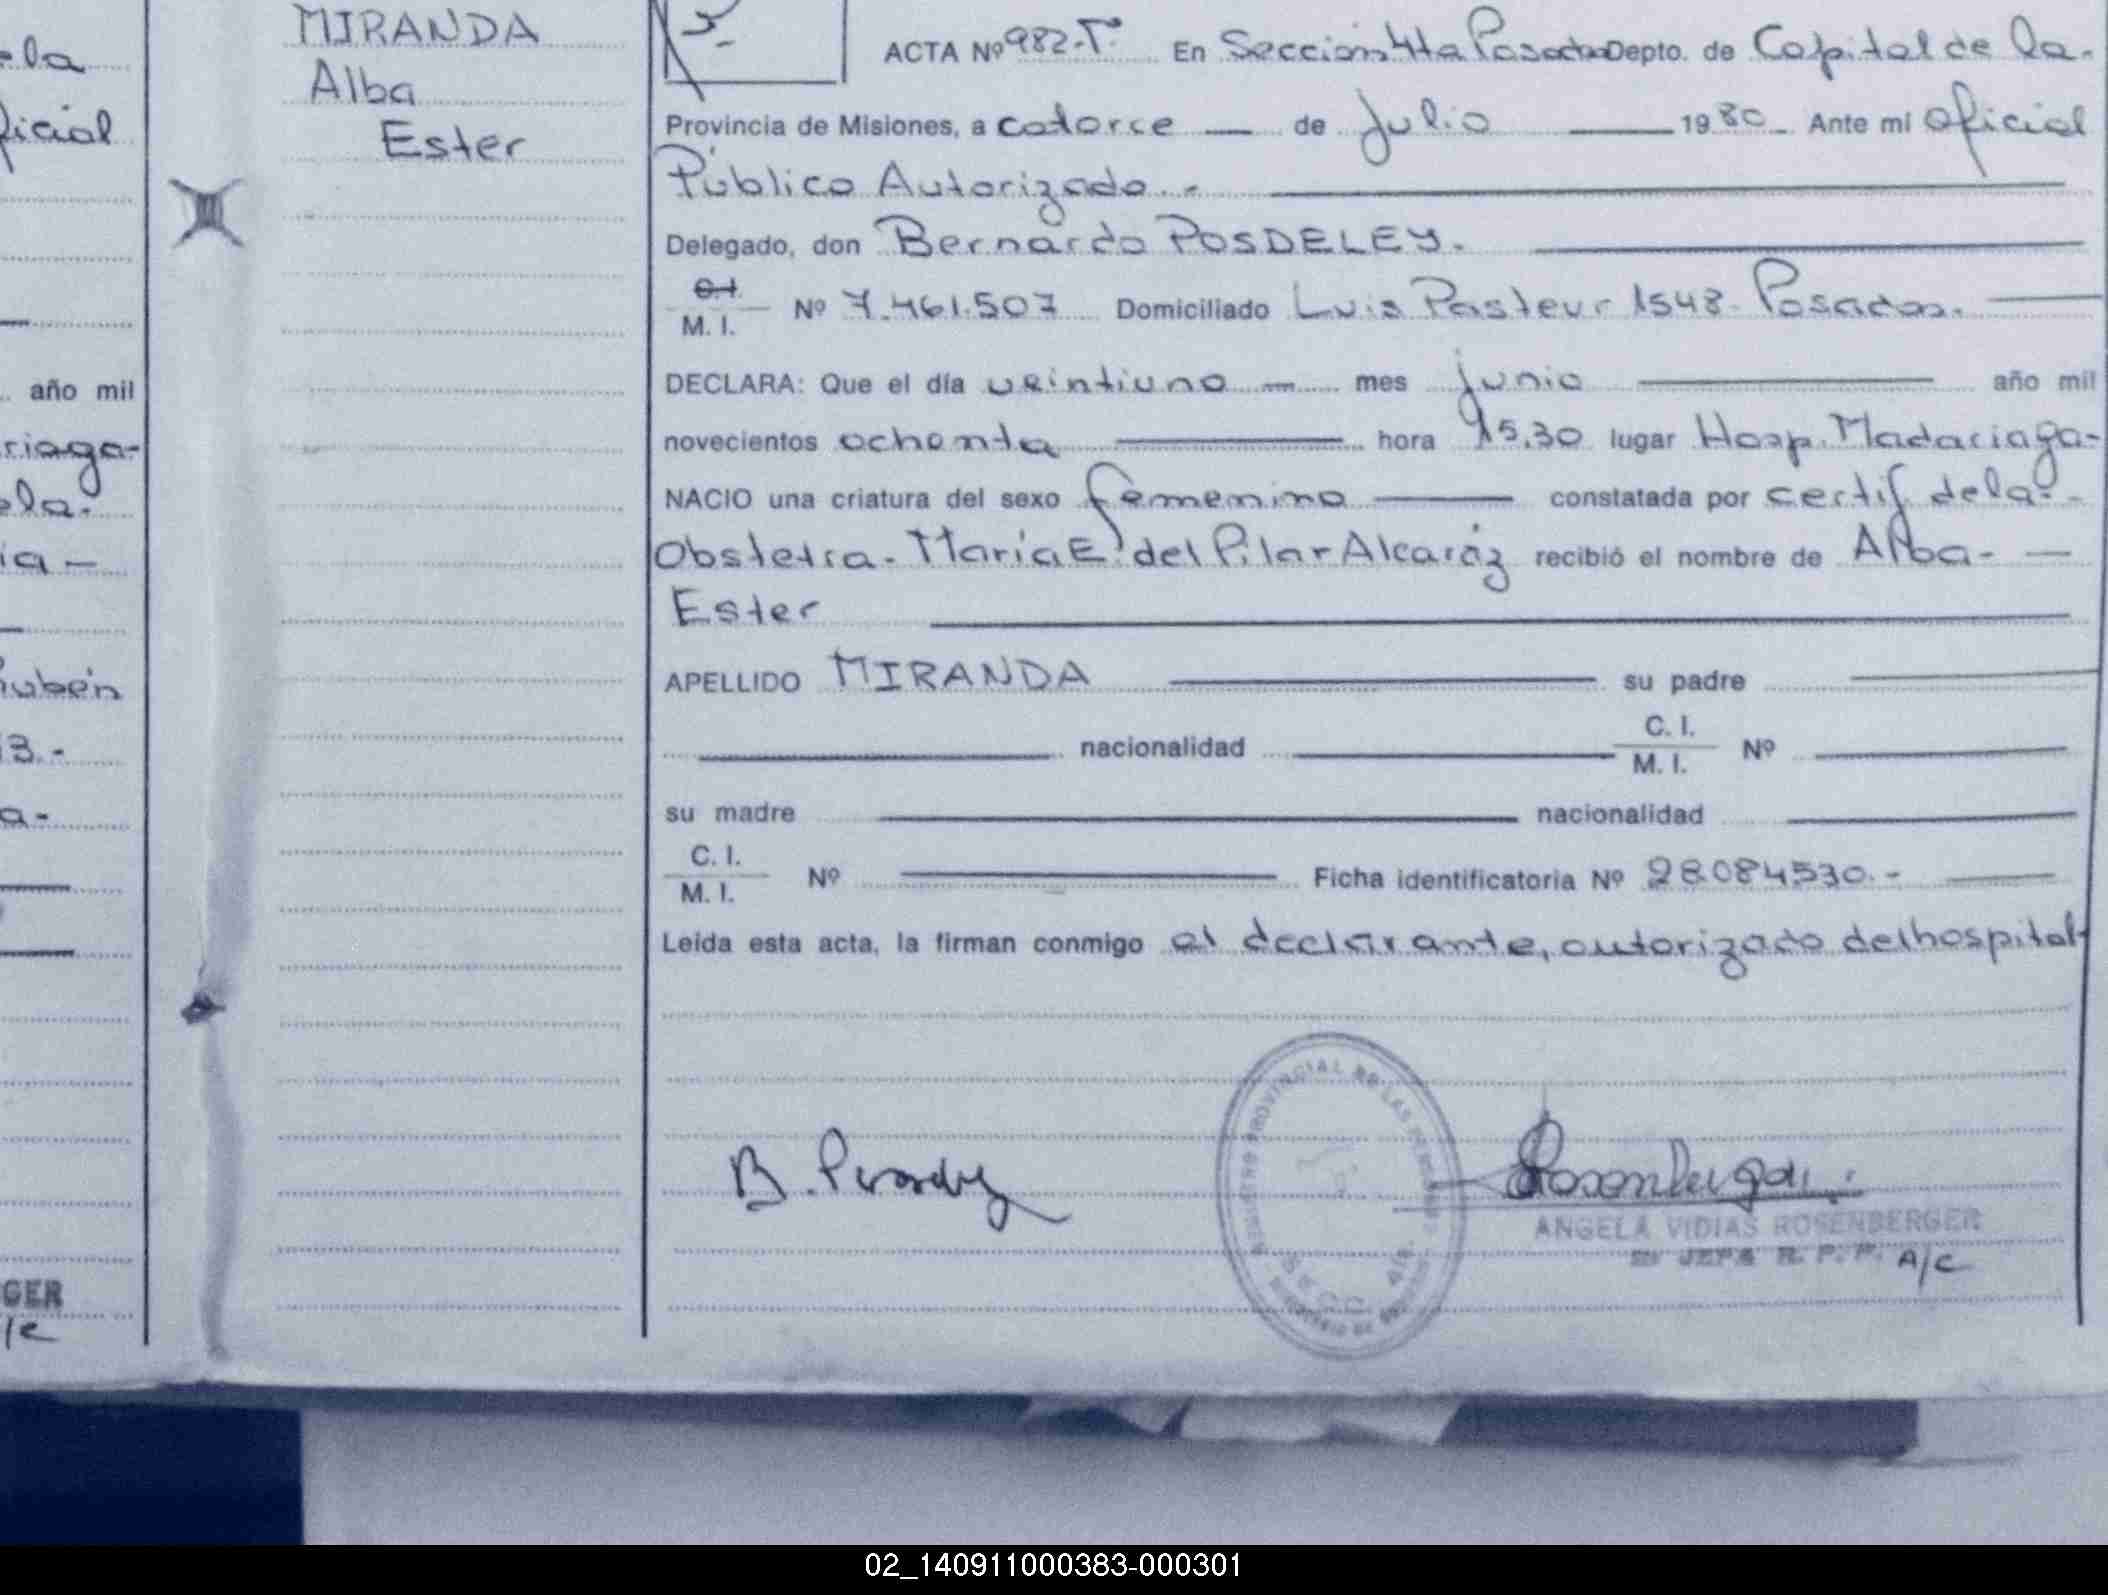 ela
MIRANDA
Alba
Ester
ficial
año mil
riaga-
ela.
ia -
Rubén
13.-
a-
GER
5-
ACTA Nº 982-T. En Sección 4ta Posadas Depto. de Capital de la.
Provincia de Misiones, a catorce — de Julio — 1980 - Ante mi oficial
Público Autorizado. -
Delegado, don Bernardo POSDELEY.
C.I.
M. I. Nº 7.461.507 Domiciliado Luis Pasteur 1548 - Posadas.
DECLARA: Que el día veintiuno — mes junio — año mil
novecientos ochenta — hora 15,30 lugar Hosp. Madariaga-
NACIO una criatura del sexo femenino — constatada por certif de la -
Obstetra - María E. del Pilar Alcaráz recibió el nombre de Alba- —
Ester
APELLIDO MIRANDA — su padre —
— nacionalidad — C. I. M. I. Nº —
su madre — nacionalidad —
C. I.
M. I. Nº — Ficha identificatoria Nº 28084530.- —
Leída esta acta, la firman conmigo el declarante, autorizado del hospital
REGISTRO PROVINCIAL DE LAS PERSONAS
SECC. 4ta.
B.
Rosenberger
ANGELA VIDIAS ROSENBERGER
JEFA R. P. P. A/C
02_140911000383-000301